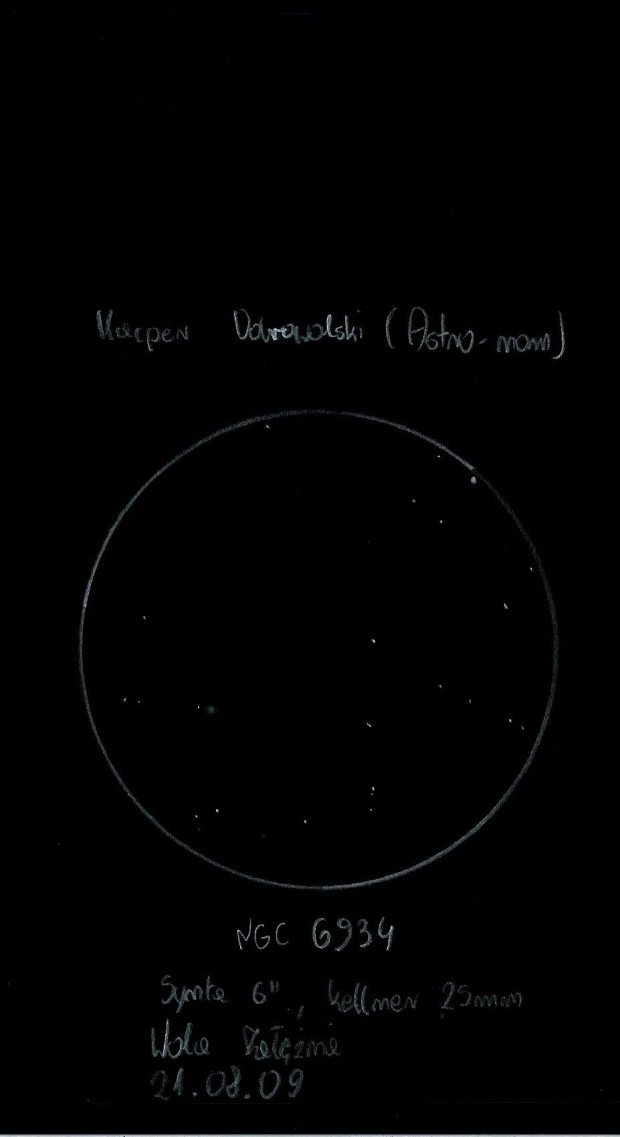 Kacper Dobrowolski (Astro-nom)
NGC 6934
Synta 6", kellner 25mm
Wola
21.08.09